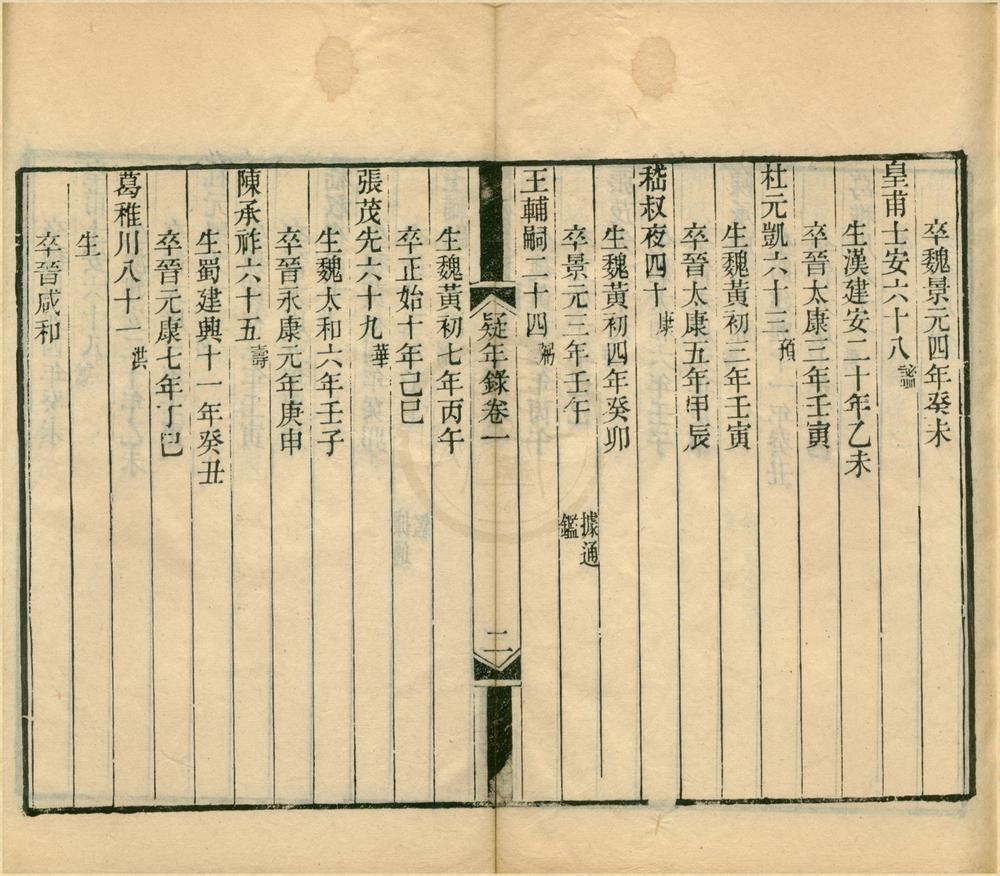 卒魏景元四年癸未
皇甫士安六十八謐
生漢建安二十年乙未
卒晉太康三年壬寅
杜元凱六十三預
生魏黃初三年壬寅
卒晉太康五年甲辰
嵇叔夜四十康
生魏黃初四年癸卯
卒景元三年壬午 據通鑑
王輔嗣二十四弼
疑年錄卷一
二
生魏黃初七年丙午
卒正始十年己巳
張茂先六十九華
生魏太和六年壬子
卒晉永康元年庚申
陳承祚六十五壽
生蜀建興十一年癸丑
卒晉元康七年丁巳
葛稚川八十一洪
生
卒晉咸和